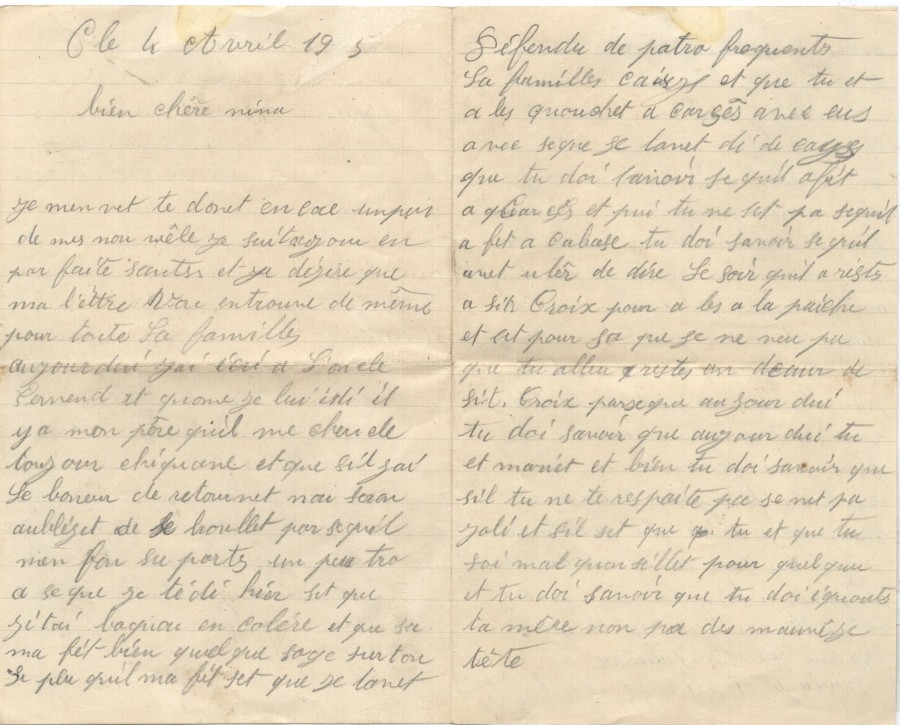 le 4 Avril 19 5
bien chère nina
je men vet te donet encore unpeu
de mes nou vêle je suit en
par faite santer et je dézire que
ma l'ettre vou entrouve de même
pour toute La familles
aujourdui jai écri a L'oncle
Fernend et quome je lui édi il
ya mon père quil me cheucle
toujour chiquane et que sil jai
Le boneur de retournet nou seron
aublézet de le boullet parsequil
men fon su porte un peu tro
a se que je té di hier set que
jétai baquou en colère et que sa
ma fét bien quelque soge surtou
Le plu quil ma fét set que je tanet
Défendu de patro frequents
La familles et que tu et
a les quouchet a cargès avec eus
avec seque je tanet di de
que tu doi sanoir se quil a fét
a et pui tu ne set pa sequil
a fet a cabase tu doi sanoir se quil
anet de dire Le soir quil a restes
a sit Croix pour a les a la paiche
et set pour sa que je ne veu pa
que tu alleu restes an de
sit. Croix parseque aujour dui
tu doi sanoir que aujour dui tu
et mariet et bien tu doi sanoir que
sil tu ne te respaite pa se net pa
joli et sil set que tu et que tu
soi mal quonseillet pour quelquun
et tu doi sanoir que tu doi équouts
ta mère non pa des mauvèse
tête